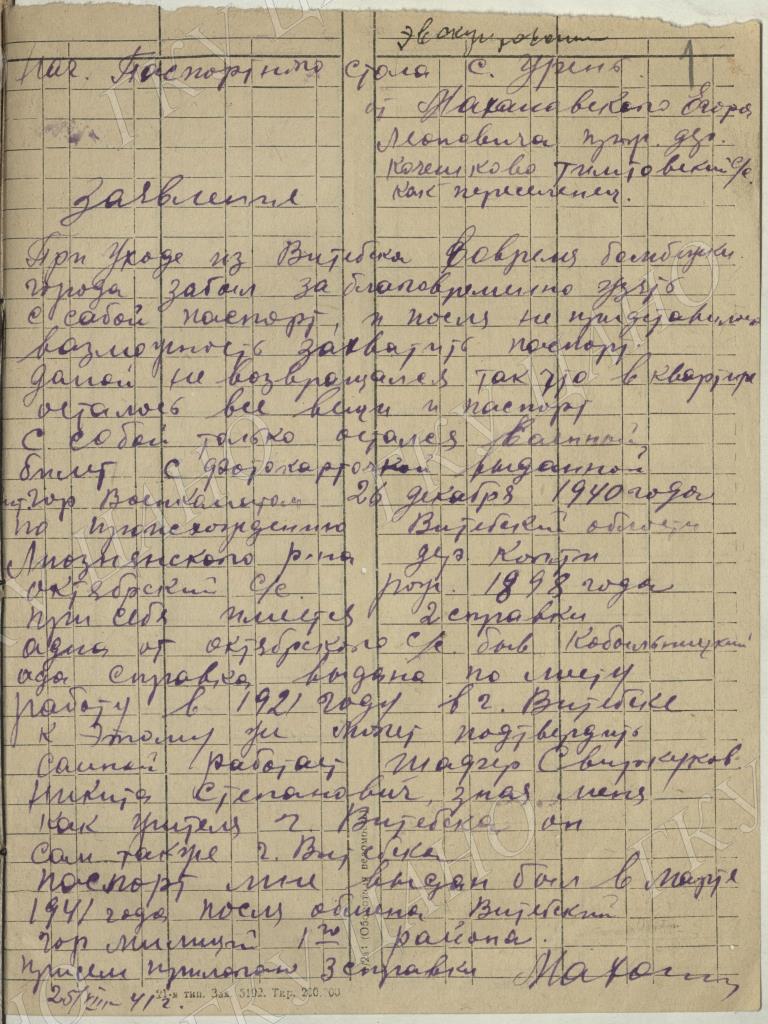 эвакуирован
1
Нач. Паспортного стола с. Урень
от Махановского Егора
Леоновича прож. дер.
Кочешково Тимтовский с/с.
как переселенец.
Заявление
При уходе из Витебска вовремя бомбежки
города забыл заблаговременно узять
с сабой паспорт, и посля не придставилось
вазможность захватить поспорт.
дамой не возвращался так что в квартире
осталось все вещи и паспорт
с собой только остался ваенный
билет с фотокарточкой выданной
Вит гор Военкоматом 26 декабря 1940 года
по происхождению Витебский области
Лиознянского р-на дер. Копти
октябрский с/с. рож. 1898 года
при себя имеется 2 справки
адна от октябрского с/с. быв Кобыльницкий
ада справка выдана по месту
работу в 1921 году в г. Витебске
к этому же может подтвердить
самной работает
Никита Степанович, зная меня
как жителя г. Витебска он
сам также г. Витебска
поспорт мне выдан был в марте
1941 года посля обмена Витебский
гор милиций 1го района.
присем прилогаю 3 справки
25/VIII-41 г.
21-я тип. Зак. 5192. Тир. 200.000